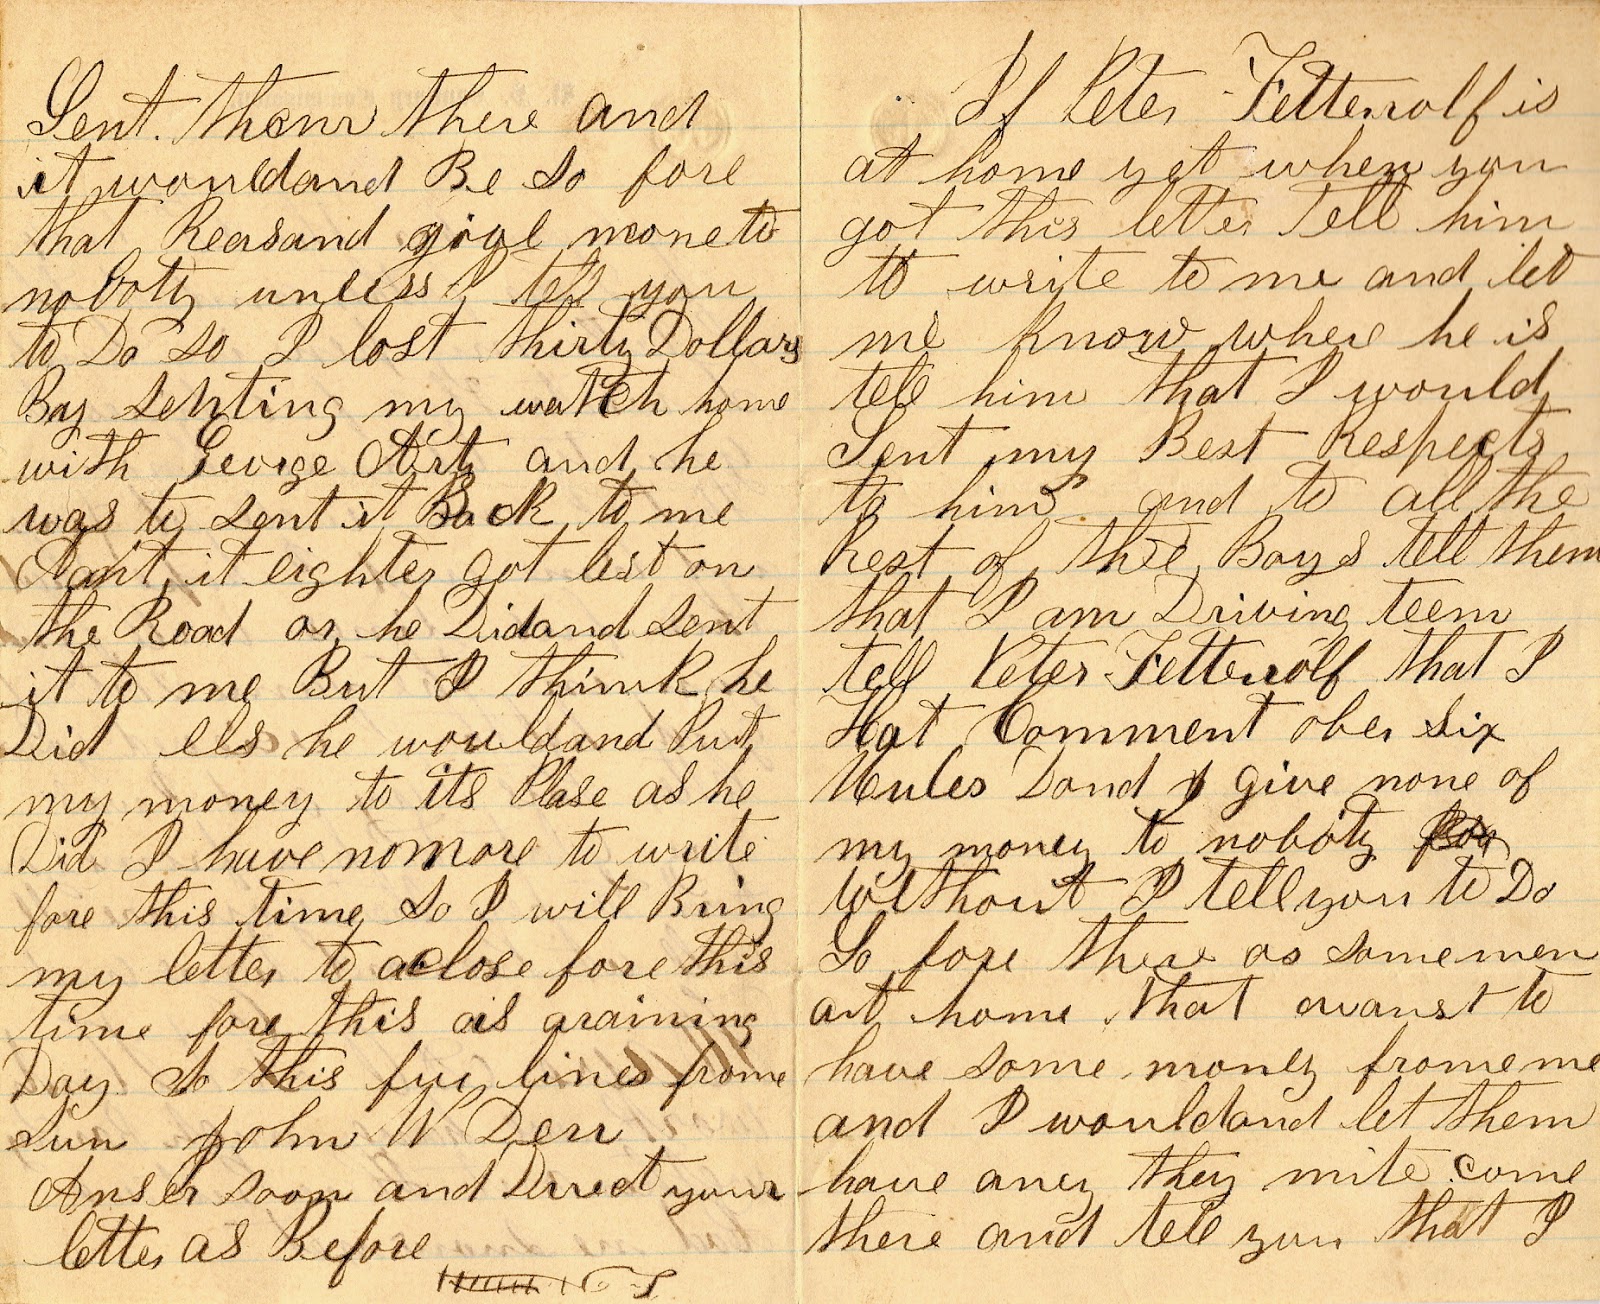 Sent. them there and
it wouldand Be so fore
that Reasand give mone to
noboty unless I tell you
to Do so I lost thirty Dollars
Bay sehting my watch home
with George Arty and he
was to sent it Back to me
it eighter got lest on
the Road or he Didand sent
it to me But I think he
Did els he wouldand Put
my money to its Plase as he
Did I have no more to write
fore this time So I will Bring
my letter to aclose fore this
time fore this ais araining
Day So this fuy lines frome
Sun John W Derr
Anser soon and Derect your
letter as Before
If Peter Fetterrolf is
at home yet when you
got this letter Tell him
to write to me and let
me know where he is
tell him that I would
Sent my Best Respects
to him and to all the
Rest of thee Boys tell them
that I am Driving teem
tell Peter Fetterrolf that I
Hat Comment ober six
Mules Dond I give none of
my money to noboty
Without I tell you to Do
So fore there as some men
at home that wanst to
have some money frome me
and I wouldand let them
have aney they mite come
there and tell you that I